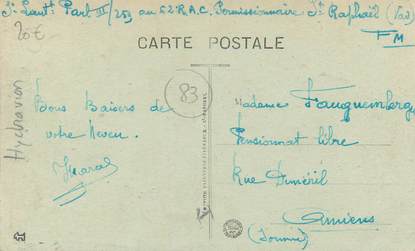 Part III/259 au 62 R.A.C. Permissionnaire St Raphaël (Var)
FM
20€
CARTE POSTALE
Hydravion
83
Bons Baisers de
votre Neveu.
Madame Fauquembergue
Pensionnat libre
Rue Duméril
Amiens
(Somme)